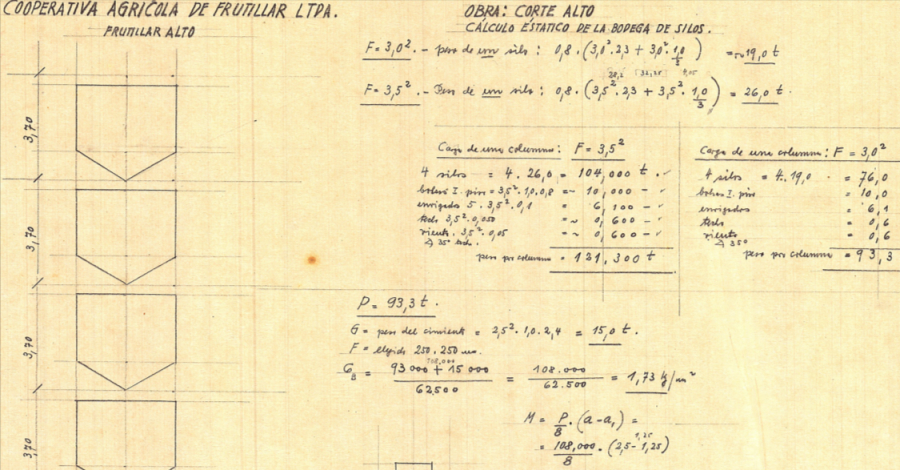 COOPERATIVA AGRICOLA DE FRUTILLAR LTDA.
FRUTILLAR ALTO
OBRA: CORTE ALTO
CALCULO ESTATICO DE LA BODEGA DE SILOS.
F = 3,0². – peso de un silo : 0,8 · (3,0² · 2,3 + 3,0² · 1,0/3) = ~ 19,0 t
F = 3,5². – Peso de un silo : 0,8 · (3,5² · 2,3 + 3,5² · 1,0/3) = 26,0 t.
3,70
3,70
3,70
3,70
Carga de una columna : F = 3,5²
4 silos = 4 · 26,0 = 104,000 t.
I. piso = 3,5² · 1,0 · 0,8 = ~ 10,000 –
envigados 5 · 3,5² · 0,1 = 6,100 –
techo 3,5² · 0,050 = ~ 0,600 –
viento · 3,5² · 0,05 = ~ 0,600 –
35° tech.
peso por columna = 121,300 t
Carga de una columna : F = 3,0²
4 silos = 4 · 19,0 = 76,0
I. piso = 10,0
envigados = 6,1
techo = 0,6
viento = 0,6
35°
peso por columna = 93,3
P = 93,3 t.
G = peso del cimiento = 2,5² · 1,0 · 2,4 = 15,0 t.
F = 250 · 250 cm.
108,000
93 000 + 15 000 / 62500 = 108.000 / 62.500 = 1,73 kg/cm²
M = P/8 · (a – a₁) =
1,25
= 108,000/8 · (2,5 – 1,25)